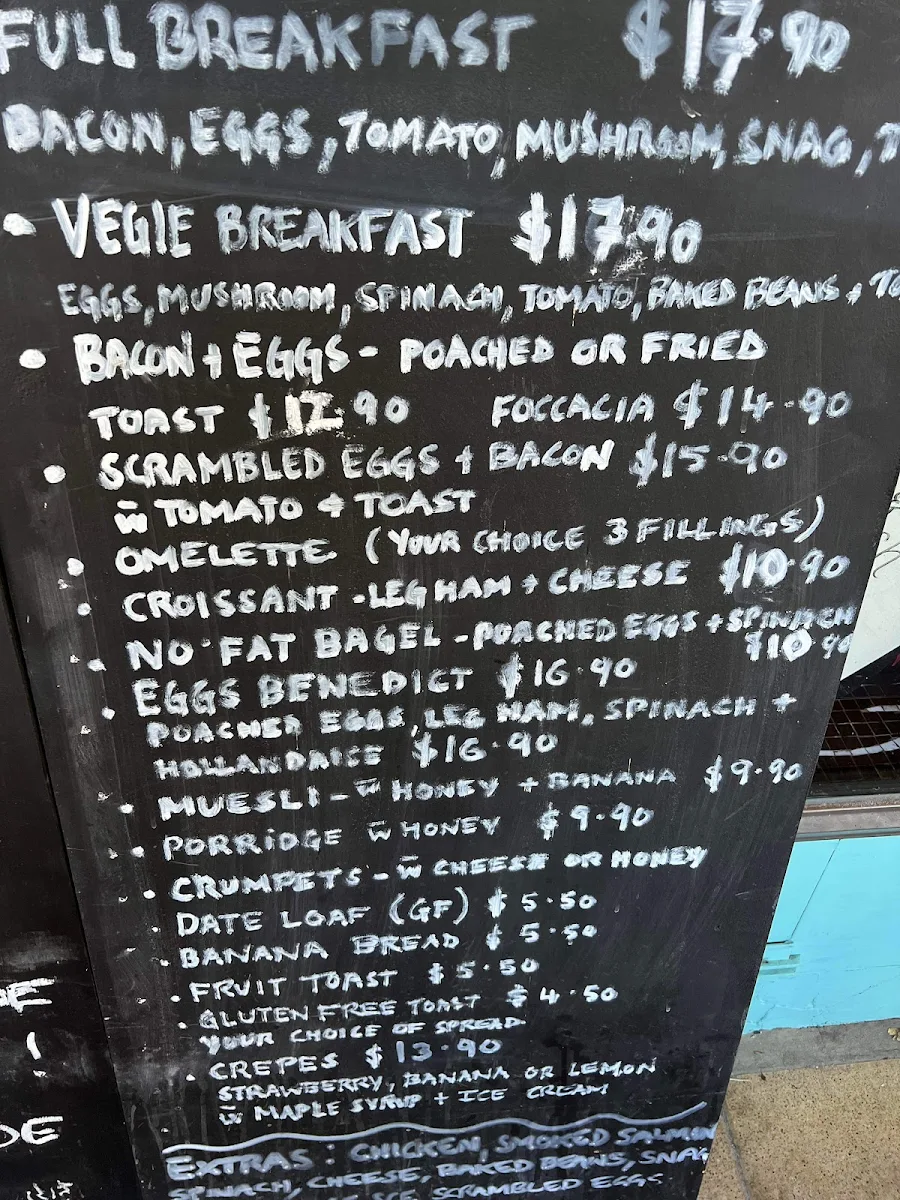 FULL BREAKFAST $17.90
BACON, EGGS, TOMATO, MUSHROOM, SNAG, T
• VEGIE BREAKFAST $17.90
EGGS, MUSHROOM, SPINACH, TOMATO, BAKED BEANS + TO
• BACON + EGGS - POACHED OR FRIED
TOAST $12.90 FOCCACIA $14.90
• SCRAMBLED EGGS + BACON $15.90
w̄ TOMATO + TOAST
• OMELETTE (YOUR CHOICE 3 FILLINGS)
• CROISSANT - LEG HAM + CHEESE $10.90
• NO FAT BAGEL - POACHED EGGS + SPINACH
$10.90
• EGGS BENEDICT $16.90
POACHED EGGS, LEG HAM, SPINACH +
HOLLANDAISE $16.90
• MUESLI - w̄ HONEY + BANANA $9.90
• PORRIDGE w̄ HONEY $9.90
• CRUMPETS - w̄ CHEESE OR HONEY
• DATE LOAF (GF) $5.50
• BANANA BREAD $5.50
• FRUIT TOAST $5.50
• GLUTEN FREE TOAST $4.50
YOUR CHOICE OF SPREAD
• CREPES $13.90
STRAWBERRY, BANANA OR LEMON
w̄ MAPLE SYRUP + ICE CREAM
EXTRAS: CHICKEN, SMOKED SALMON
SPINACH, CHEESE, BAKED BEANS, SNAG
SCRAMBLED EGGS